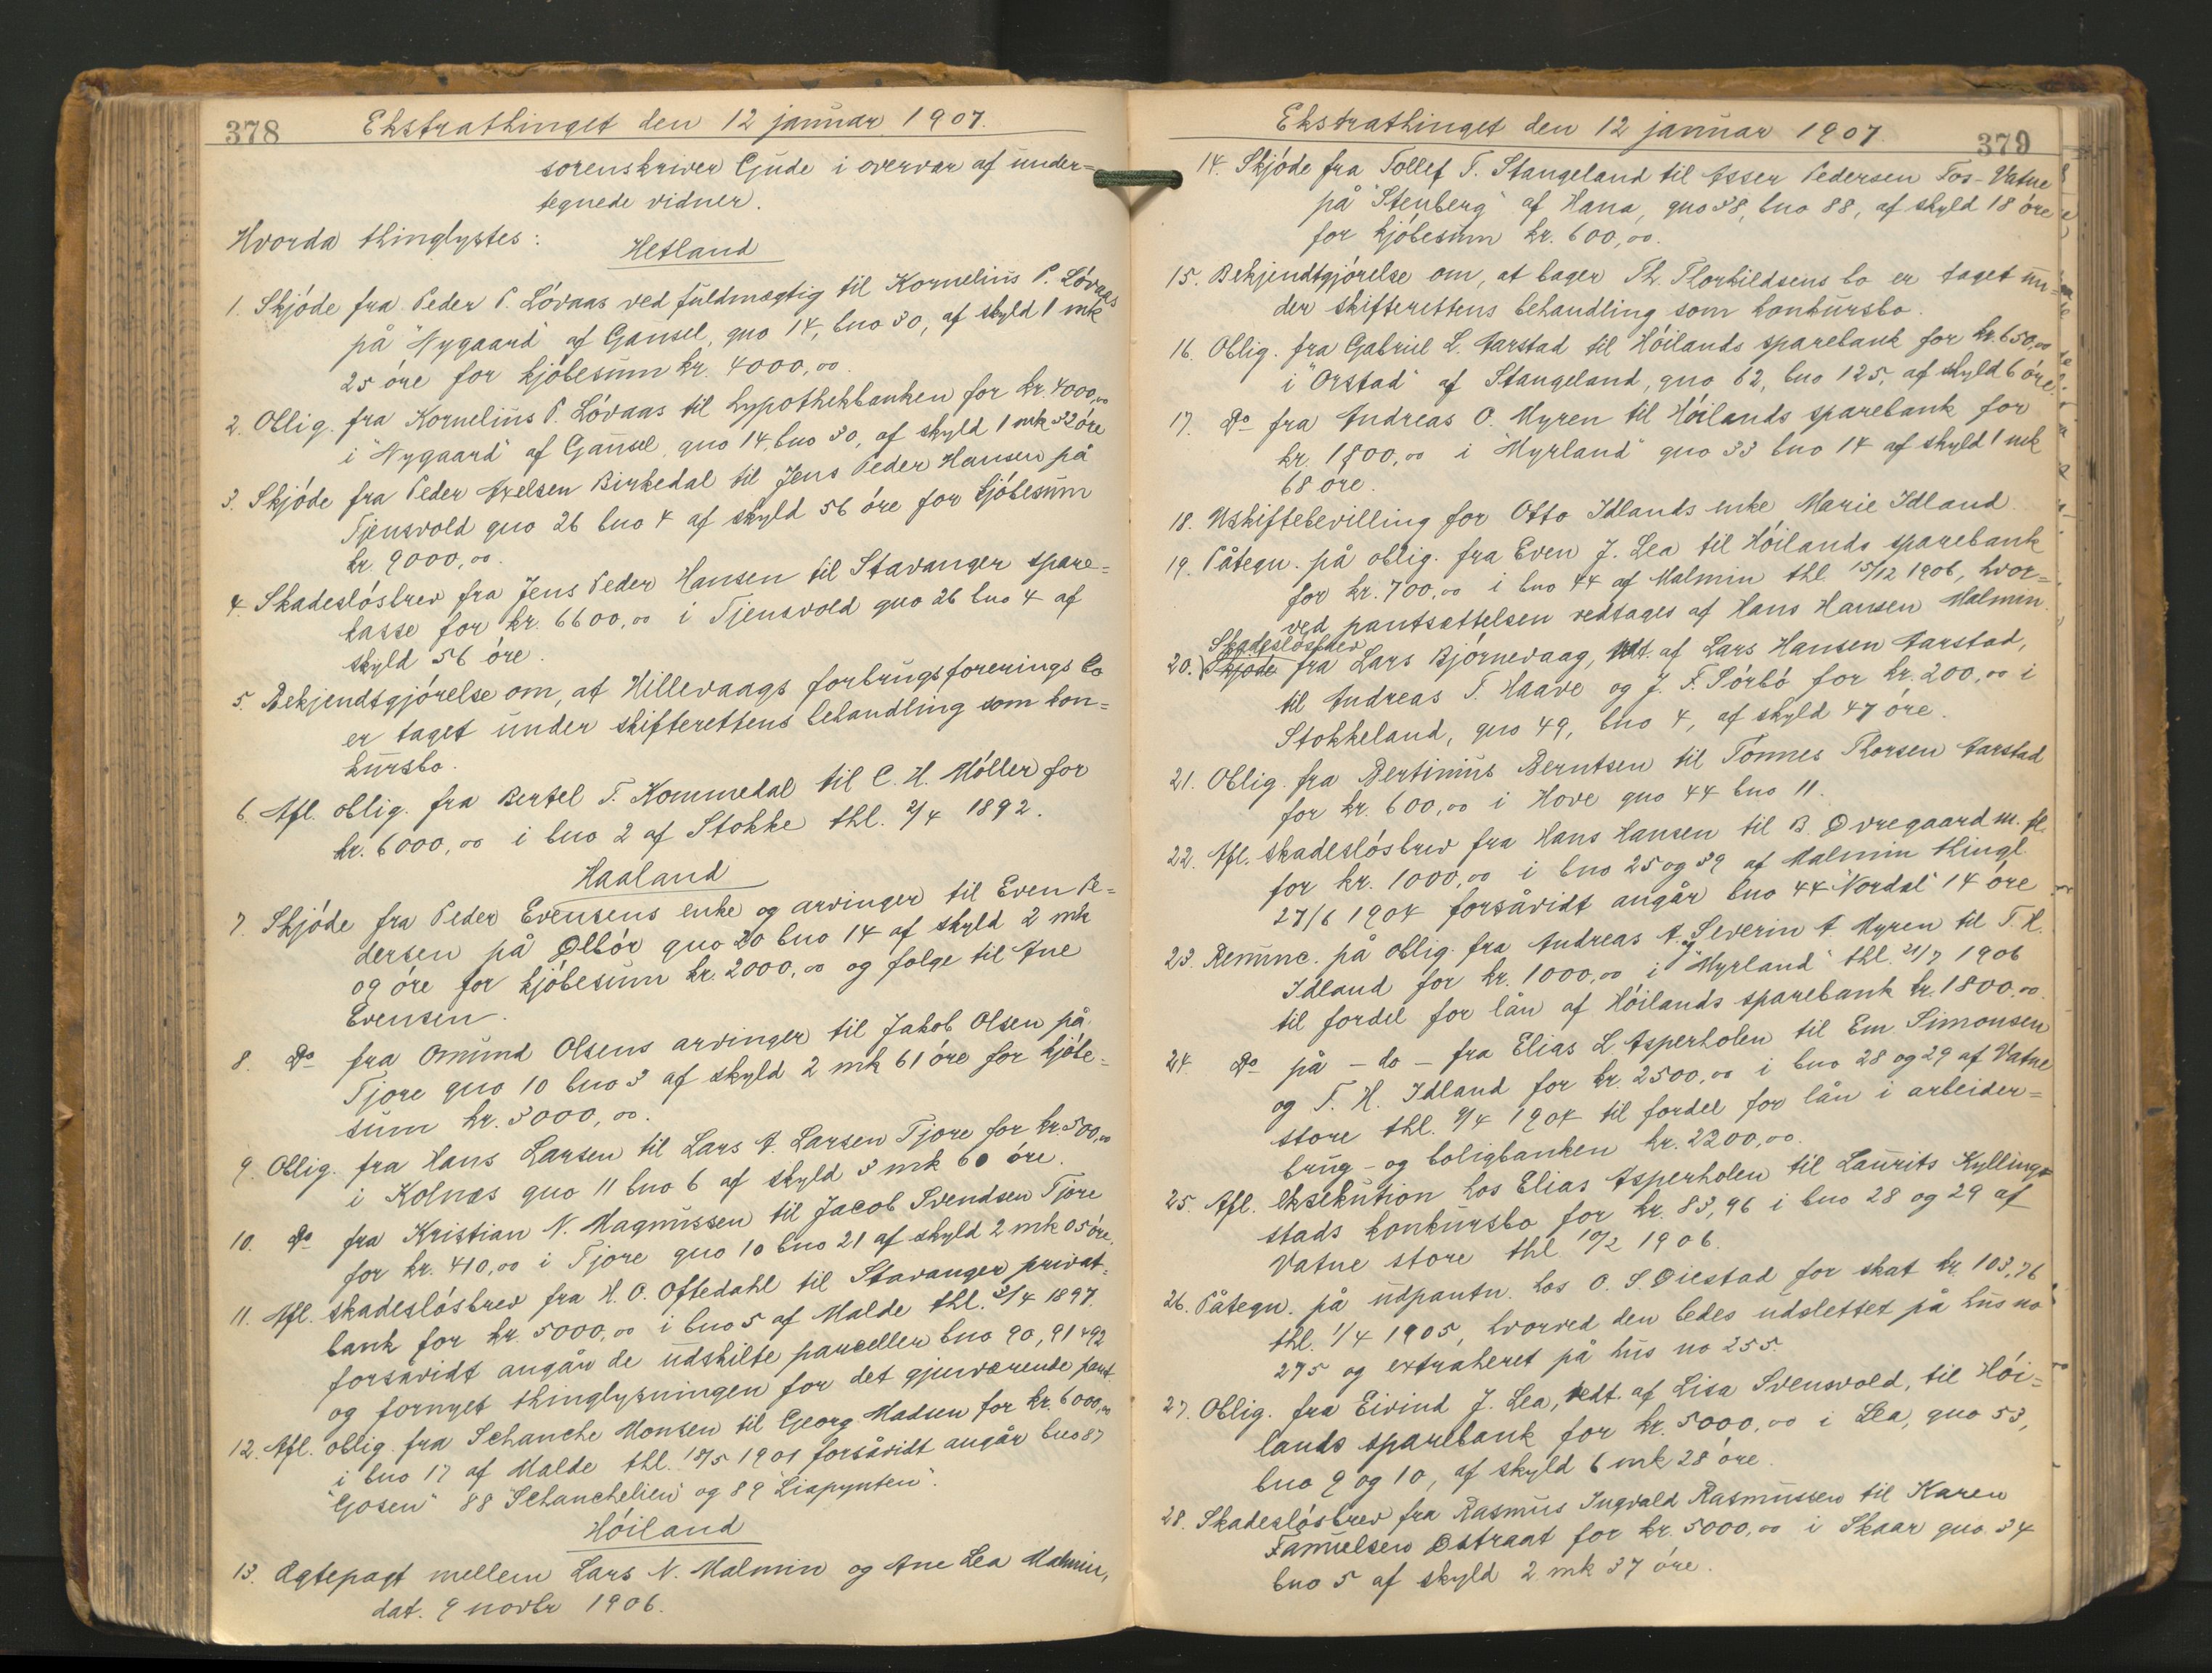 378 Ekstrathinget den 12 januar 1907.
sorenskriver Gjude i overvær af under=
tegnede vidner.
Hvorda thinglystes:
Hetland
1. Skjöde fra Peder P. Lövaas ved fuldmægtig til Kornelius P. Lövaas
på "Nygaard" af Gausel, gno 14, bno 30, af skyld 1 mk
25 öre for kjöbesum kr. 4000,00.
2. Oblig. fra Kornelius P. Lövaas til hypothekbanken for kr. 4000,00
i "Nygaard" af Gausel, gno 14, bno 30, af skyld 1 mk 32 öre
3. Skjöde fra Peder Axelsen Birkedal til Jens Peder Hansen på
Tjensvold gno 26 bno 4 af skyld 56 öre for kjöbesum
kr. 9000,00.
4. Skadeslösbrev fra Jens Peder Hansen til Stavanger spare=
kasse for kr. 6600,00 i Tjensvold gno 26 bno 4 af
skyld 56 öre.
5. Bekjendtgjörelse om, at Hillevaags forbrugsforenings bo
er taget under skifterettens behandling som kon=
kursbo.
6. Afl. oblig. fra Bertel T. Kommedal til C. H. Möller for
kr. 6000,00 i bno 2 af Stokke thl. 2/4 1892.
Haaland
7. Skjöde fra Peder Evensens enke og arvinger til Even Pe=
dersen på Ølbör gno 20 bno 14 af skyld 2 mk
09 öre for kjöbesum kr. 2000,00 og folge til Ane
Evensen.
8. Do fra Omund Olsens arvinger til Jakob Olsen på
Tjore gno 10 bno 3 af skyld 2 mk 61 öre for kjöbe=
sum kr. 3000,00.
9. Oblig. fra Hans Larsen til Lars A. Larsen Tjore for kr. 500,00
i Kolnæs gno 11 bno 6 af skyld 3 mk 60 öre.
10. Do fra Kristian N. Magnussen til Jacob Svendsen Tjore
for kr. 410,00 i Tjore gno 10 bno 21 af skyld 2 mk 05 öre.
11. Afl. skadeslösbrev fra H. O. Oftedahl til Stavanger privat=
bank for kr. 5000,00 i bno 5 af Malde thl. 3/4 1897.
forsåvidt angår de udskilte parceller bno 90, 91 & 92
og fornyet thinglysningen for det gjenværende pant.
12. Afl. oblig. fra Schanche Monsen til Georg Madsen for kr. 6000,00
i bno 17 af Malde thl. 18/5 1901 forsåvidt angår bno 87
"Gosen" 88 "Schanchelien" og 89 "Liapynten".
Höiland
13. Ægtepagt mellem Lars N. Malmin og Ane Lea Malmin,
dat. 9 novbr 1906.
Ekstrathinget den 12 januar 1907. 379
14. Skjöde fra Tollef T. Stangeland til Asser Pedersen Fos-Vatne
på "Stenberg" af Hana, gno 38, bno 88, af skyld 18 öre
for kjöbesum kr. 600,00.
15. Bekjendtgjörelse om, at bager Th. Thorkildsens bo er taget un=
der skifterettens behandling som konkursbo.
16. Oblig. fra Gabriel L. Aarstad til Höilands sparebank for kr. 650,00
i "Orstad" af Stangeland, gno 62, bno 125, af skyld 6 öre.
17. Do fra Andreas O. Myren til Höilands sparebank for
kr. 1800,00 i "Myrland" gno 33 bno 14 af skyld 1 mk
68 öre.
18. Uskiftebevilling for Otto Idlands enke Marie Idland.
19. Påtegn. på oblig. fra Even J. Lea til Höilands sparebank
for kr. 700,00 i bno 44 af Malmin thl. 15/12 1906, hvor=
ved pantsættelsen vedtages af Hans Hansen Malmin.
Skadeslösbrev
20. Skjöde fra Lars Bjørnevaag, vedt. af Lars Hansen Aarstad,
til Andreas T. Haave og J. F. Sörbö for kr. 200,00 i
Stokkeland, gno 49, bno 4, af skyld 47 öre.
21. Oblig. fra Bertinius Berntsen til Tönnes Thorsen Aarstad
for kr. 600,00 i Hove gno 44 bno 11.
22. Afl. skadeslösbrev fra Hans Hansen til B. Øvregaard m. fl.
for kr. 1000,00 i bno 25 og 39 af Malmin thingl.
27/6 1904 forsåvidt angår bno 44 "Nordal" 14 öre
23. Renunc. på oblig. fra Andreas A. og Severin A. Myren til T. H.
Idland for kr. 1000,00 i "Myrland" thl. 21/7 1906
til fordel for lån af Höilands sparebank kr. 1800,00.
24. Do på - do - fra Elias L Asperholen til Em. Simonsen
og T. H. Idland for kr. 2500,00 i bno 28 og 29 af Vatne
store thl. 9/4 1904 til fordel for lån i arbeider=
brug- og boligbanken kr. 2200,00.
25. Afl. eksekution hos Elias Asperholen til Laurits Kyllings=
stads konkursbo for kr. 83,96 i bno 28 og 29 af
Vatne store thl. 10/2 1906.
26. Påtegn. på udpantn. hos O. S. Øiestad for skat kr. 103,76
thl. 1/4 1905, hvorved den bedes udslettet på hus no
275 og extraheret på hus no 255.
27. Oblig. fra Eivind J. Lea, vedt. af Lisa Svensvold, til Höi=
lands sparebank for kr. 5000,00 i Lea, gno 53,
bno 9 og 10, af skyld 6 mk 28 öre.
28. Skadeslösbrev fra Rasmus Ingvald Rasmussen til Karen
Samuelsen Østraat for kr. 5000,00 i Skaar gno 34
bno 5 af skyld 2 mk 37 öre.